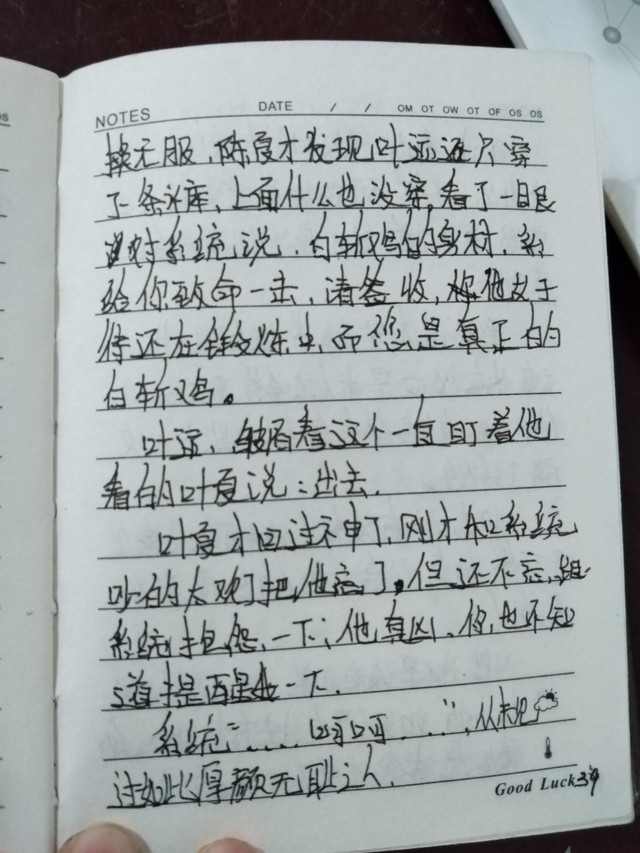 NOTES DATE / / OM OT OW OT OF OS OS
换衣服,陈夏才发现叶远还只穿
了一条 裤,上面什么也没穿,看了一眼
对系统说,白斩鸡的身材,系
给你致命一击,请签收,
得还在锻炼中,而您是真正的
白斩鸡。
叶远,皱眉看这个一直盯着他
看的叶夏说:出去.
叶夏才回过神了,刚才和系统
吵的太欢了把他忘了。但还不忘跟
系统抱怨,一下;他真凶,你,也不知
道提醒我一下.
系统:".... 呵呵 ....",从未见
过如此厚颜无耻之人.
Good Luck